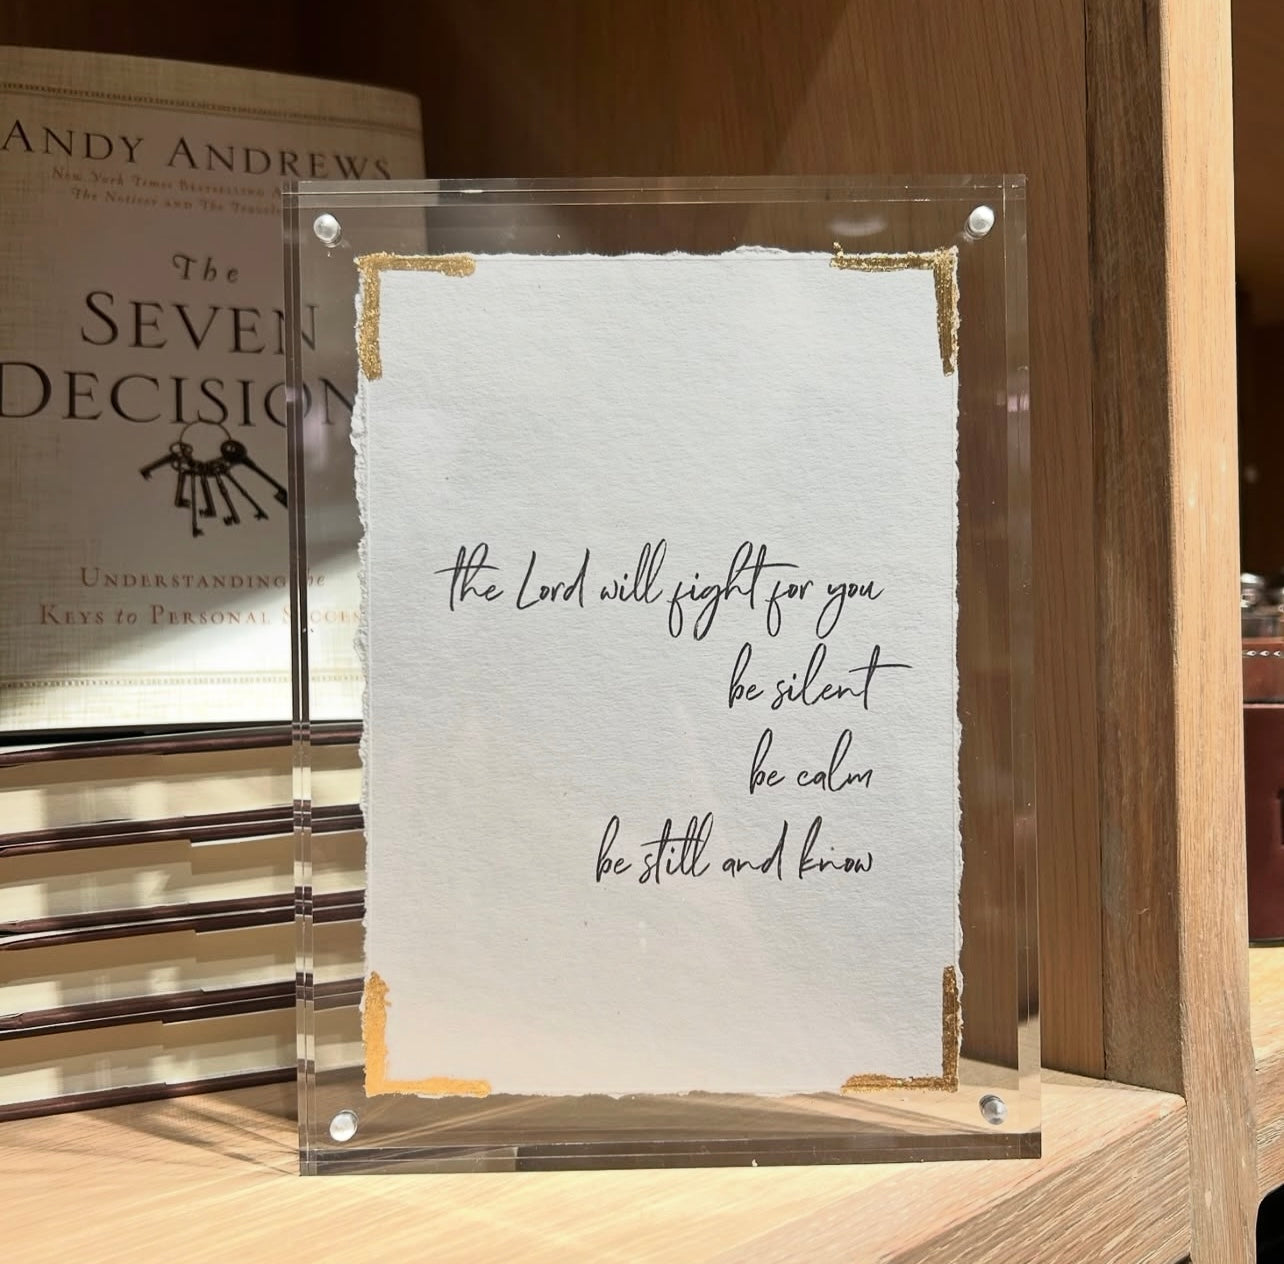 ANDY ANDREWS
New York Times BESTSELLING
The Noticer AND The
The
SEVEN
DECISION
UNDERSTANDING the
KEYS to PERSONAL
the Lord will fight for you
be silent
be calm
be still and know